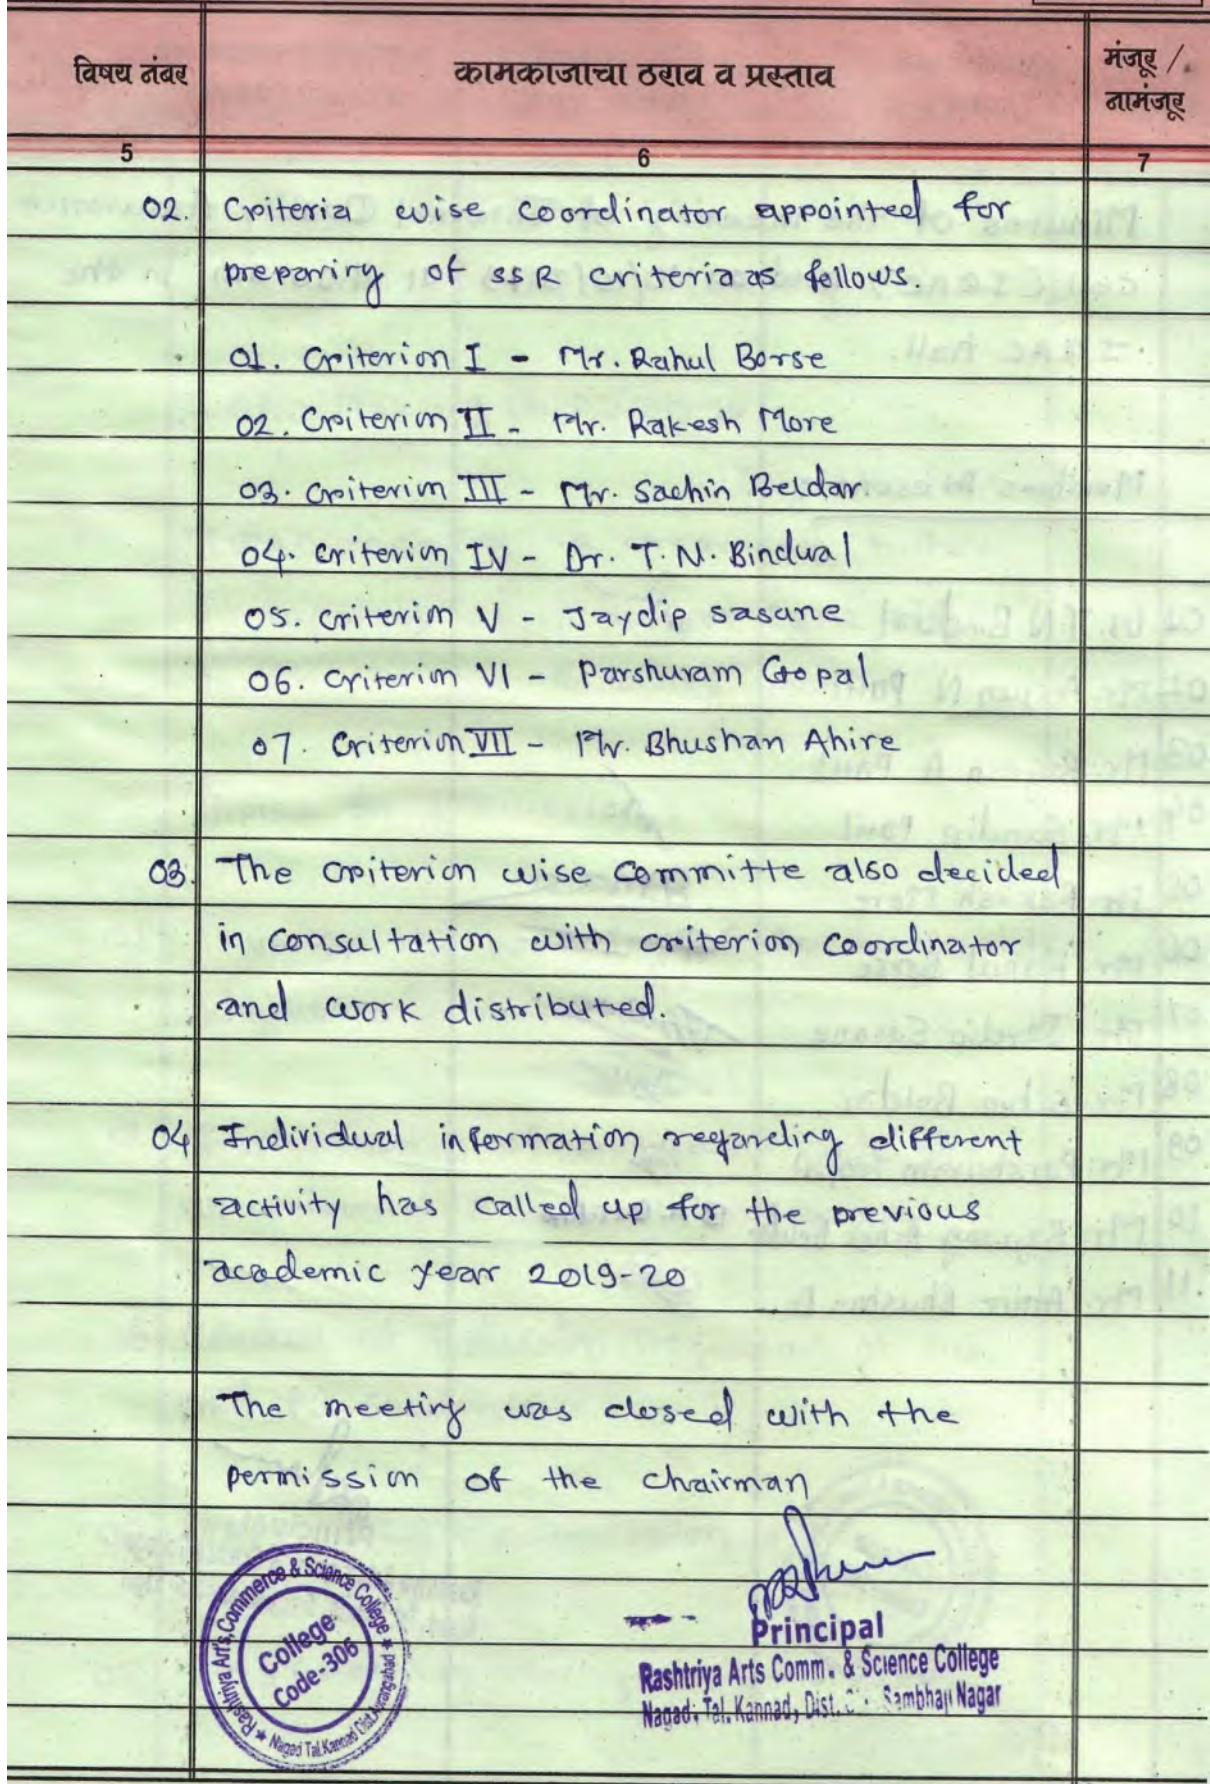 विषय नंबर
कामकाजाचा ठराव व प्रस्ताव
मंजूर /
नामंजूर
5
6
7
02. Criteria wise coordinator appointed for
preparing of SSR criteria as follows.
01. Criterion I - Mr. Rahul Borse
02. Criterion II - Mr. Rakesh More
03. Criterion III - Mr. Sachin Beldar
04. Criterion IV - Dr. T. N. Bindwal
05. Criterion V - Jaydip Sasane
06. Criterion VI - Parshuram Gopal
07. Criterion VII - Mr. Bhushan Ahire
03. The criterion wise committe also decided
in consultation with criterion coordinator
and work distributed.
04 Individual information regarding different
activity has called up for the previous
academic year 2019-20
The meeting was closed with the
permission of the chairman
Rashtriya Art's, Commerce & Science College
College
Code-306
Nagad Tal. Kannad Dist. Aurangabad
Principal
Rashtriya Arts Comm. & Science College
Nagad, Tal. Kannad, Dist. Sambhaji Nagar